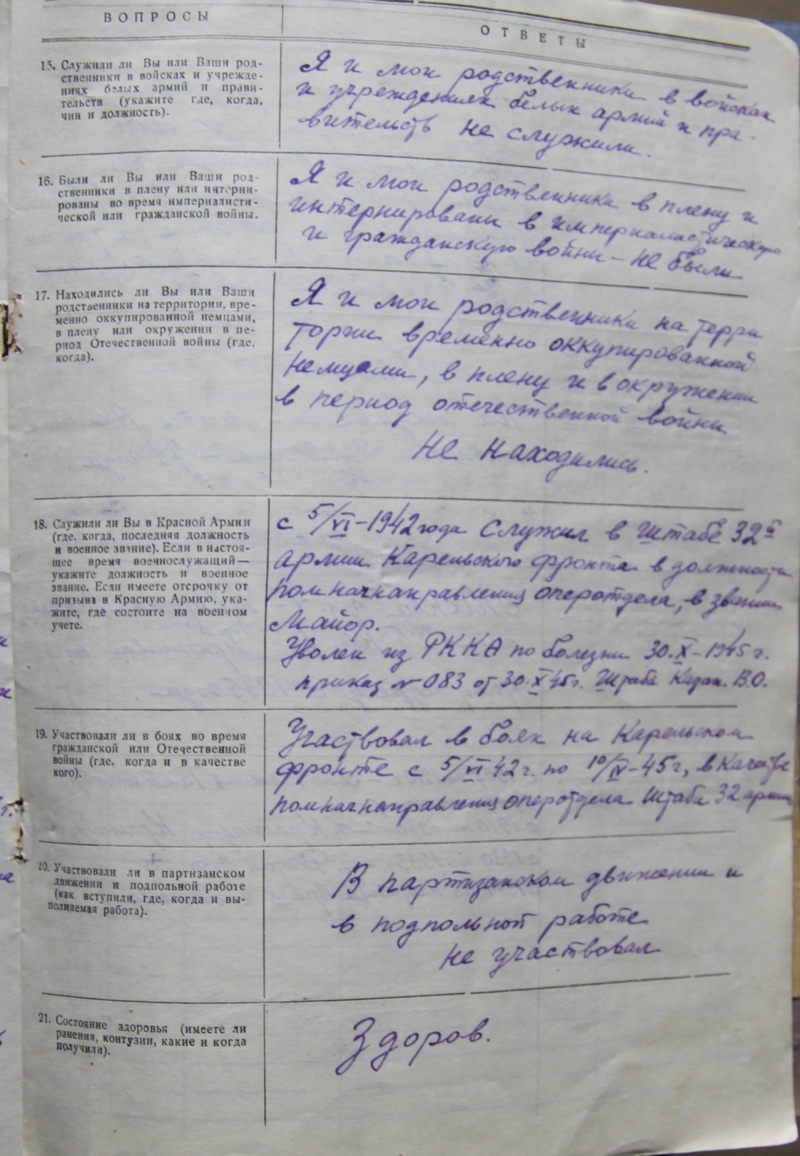 ВОПРОСЫ
ОТВЕТЫ
15. Служили ли Вы или Ваши род-
ственники в войсках и учрежде-
ниях белых армий и прави-
тельств (укажите где, когда,
чин и должность).
Я и мои родственники в войсках
и учреждениях белых армий и пра-
вительств не служили.
16. Были ли Вы или Ваши род-
ственники в плену или интерни-
рованы во время империалисти-
ческой или гражданской войны.
Я и мои родственники в плену и
интернированы в империалистическую
и гражданскую войны – не были
17. Находились ли Вы или Ваши
родственники на территории, вре-
менно оккупированной немцами,
в плену или окружении в пе-
риод Отечественной войны (где,
когда).
Я и мои родственники на терри
тории временно оккупированной
немцами, в плену и в окружении
в период отечественной войны
не находились.
18. Служили ли Вы в Красной Армии
(где, когда, последняя должность
и военное звание). Если в настоя-
щее время военнослужащий—
укажите должность и военное
звание. Если имеете отсрочку от
призыва в Красную Армию, ука-
жите, где состоите на военном
учете.
с 5/VI–1942 года служил в Штабе 32й
армии Карельского фронта в должности
помначнаправления оперотдела, в звании
Майор.
Уволен из РККА по болезни 30.X–1945 г.
приказ № 083 от 30.X 45г. Штаба Казан. В.О.
19. Участвовали ли в боях во время
гражданской или Отечественной
войны (где, когда и в качестве
кого).
Участвовал в боях на Карельском
фронте с 5/VI 42 г. по 10/IV–45 г, в качестве
помначнаправления оперотдела Штаба 32 армии
20. Участвовали ли в партизанском
движении и подпольной работе
(как вступили, где, когда и вы-
полняемая работа).
В партизанском движении и
в подпольной работе
не участвовал
21. Состояние здоровья (имеете ли
ранения, контузии, какие и когда
получили).
Здоров.